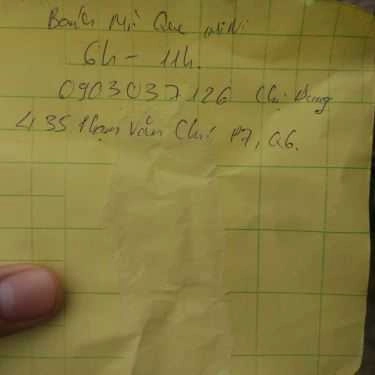 Bánh Mì Que mini
6h - 11h.
0903037126 Chị Dung
435 Phạm Văn Chí P7, Q6.